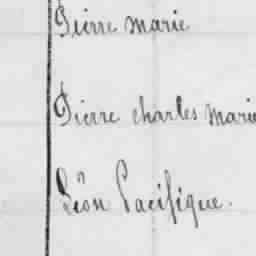 Pierre marie
Pierre charles marie
Léon Pacifique.